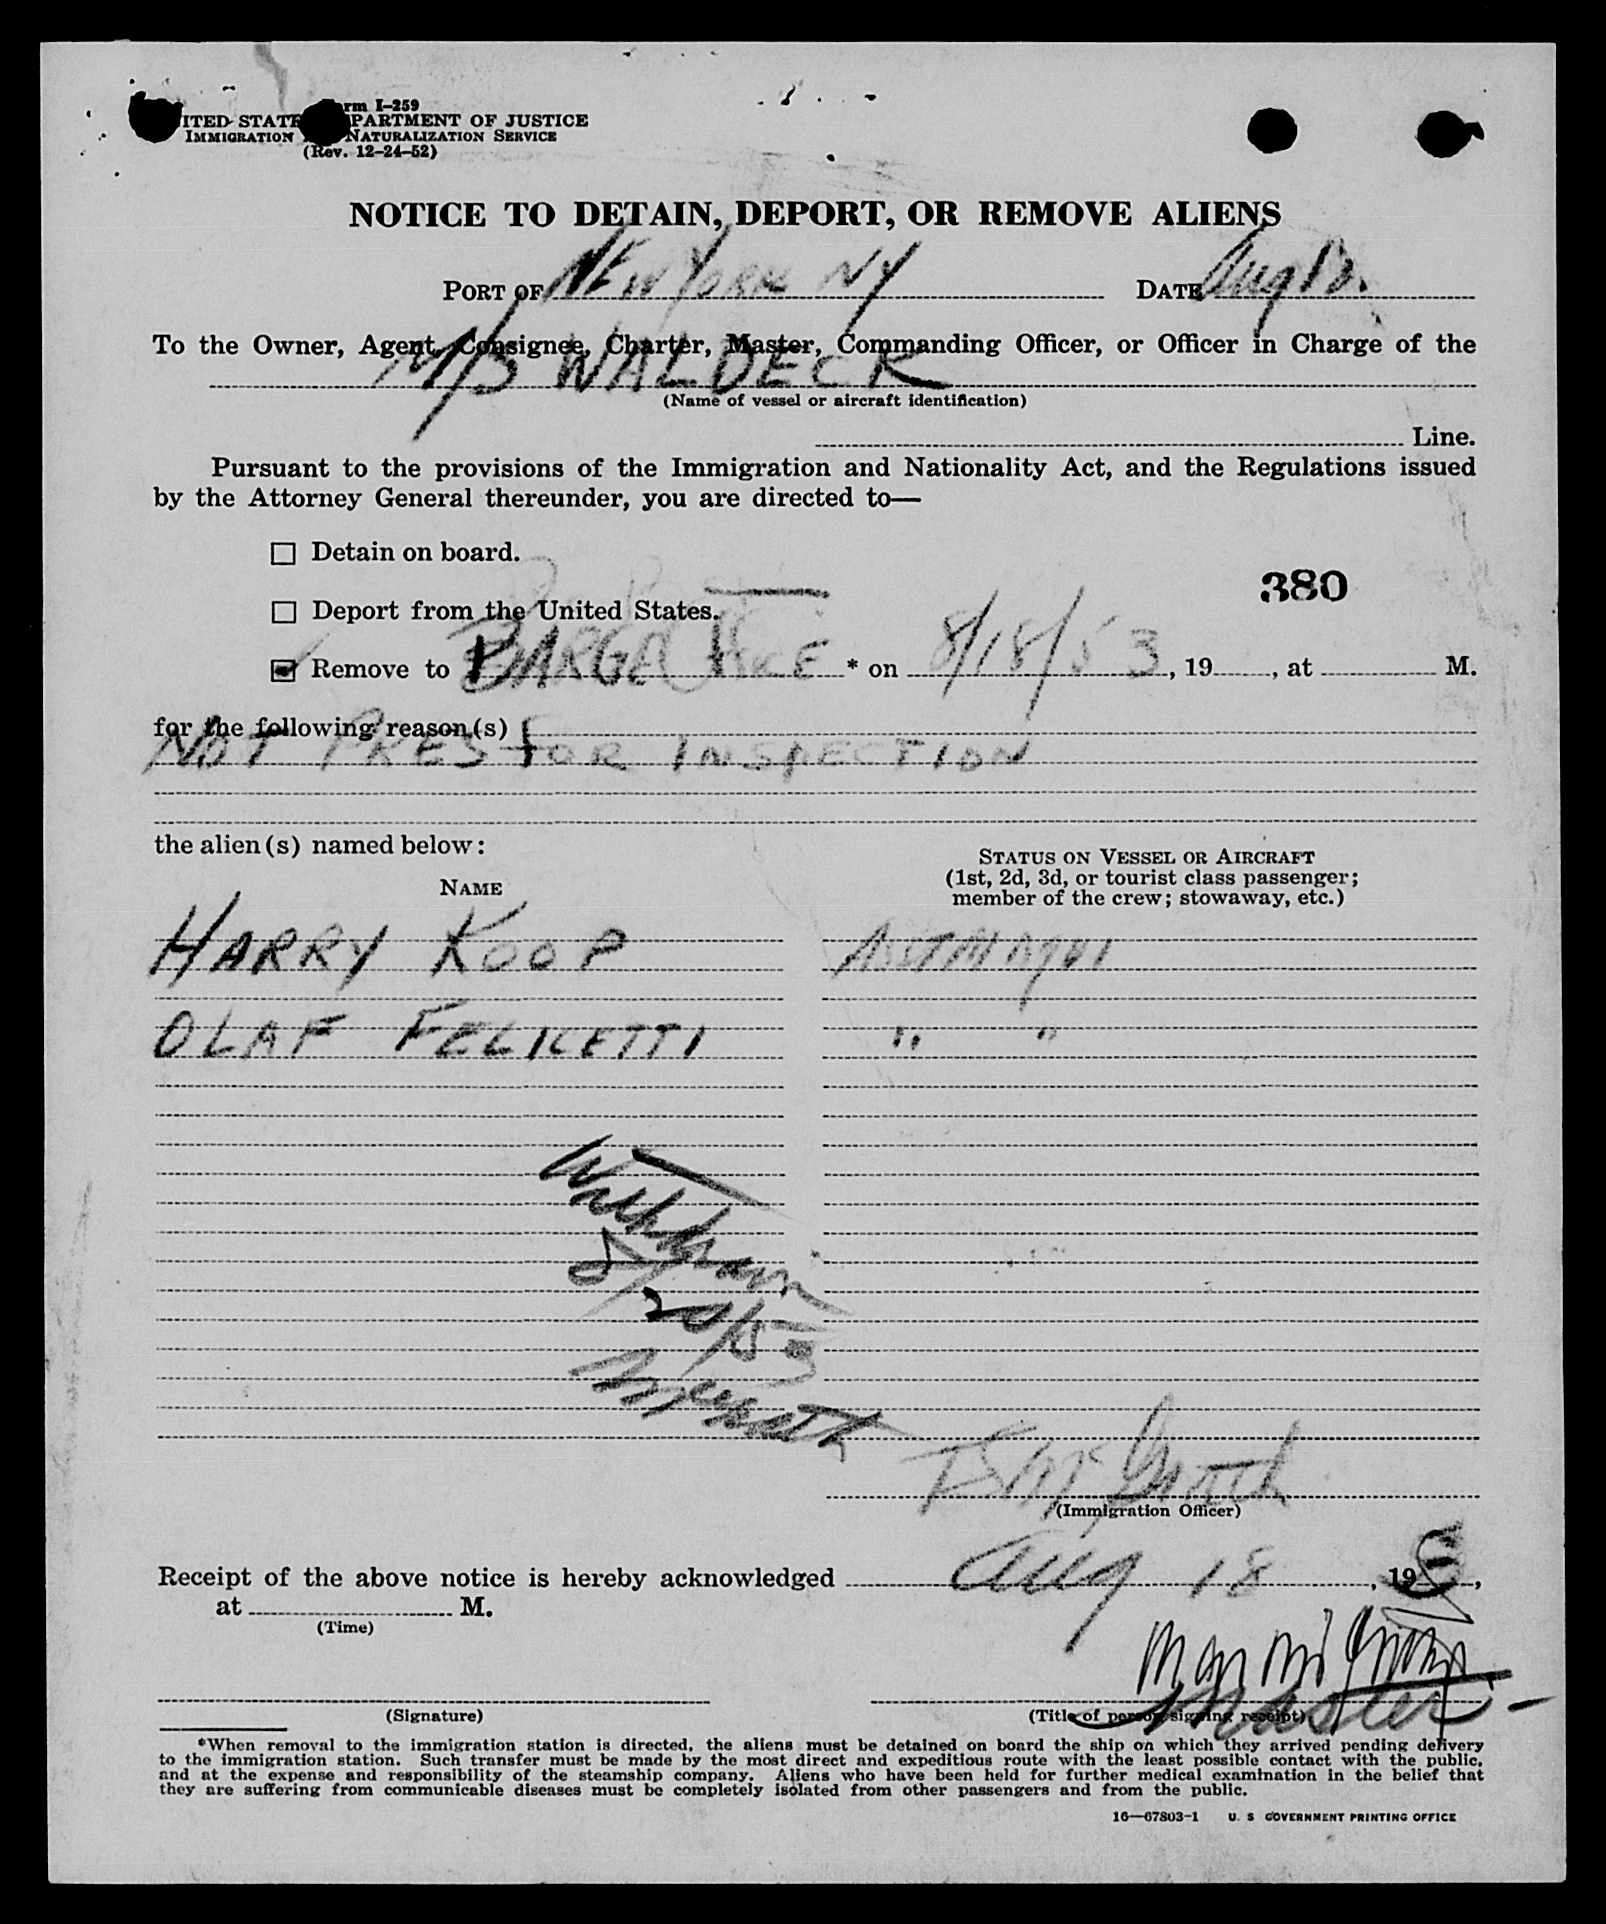 Form I-259
UNITED STATES DEPARTMENT OF JUSTICE
IMMIGRATION NATURALIZATION SERVICE
(Rev. 12-24-52)
NOTICE TO DETAIN, DEPORT, OR REMOVE ALIENS
PORT OF NEW YORK NY DATE Aug
To the Owner, Agent, Consignee, Charter, Master, Commanding Officer, or Officer in Charge of the
M/S WALDECK
(Name of vessel or aircraft identification)
Line.
Pursuant to the provisions of the Immigration and Nationality Act, and the Regulations issued
by the Attorney General thereunder, you are directed to—
☐ Detain on board.
380
☐ Deport from the United States.
Remove to BARGE OFFICE * on 8/18/53, 19, at M.
for the following reason(s)
NOT PRES FOR INSPECTION
the alien(s) named below:
STATUS ON VESSEL OR AIRCRAFT
(1st, 2d, 3d, or tourist class passenger;
member of the crew; stowaway, etc.)
NAME
HARRY KOOP
OLAF FELICETTI " "
Withdrawn
8/20/53
(Immigration Officer)
Receipt of the above notice is hereby acknowledged Aug 18, 1953,
at M.
(Time)
Master
(Signature) (Title of person signing receipt)
*When removal to the immigration station is directed, the aliens must be detained on board the ship on which they arrived pending delivery
to the immigration station. Such transfer must be made by the most direct and expeditious route with the least possible contact with the public,
and at the expense and responsibility of the steamship company. Aliens who have been held for further medical examination in the belief that
they are suffering from communicable diseases must be completely isolated from other passengers and from the public.
16—67803-1 U. S GOVERNMENT PRINTING OFFICE